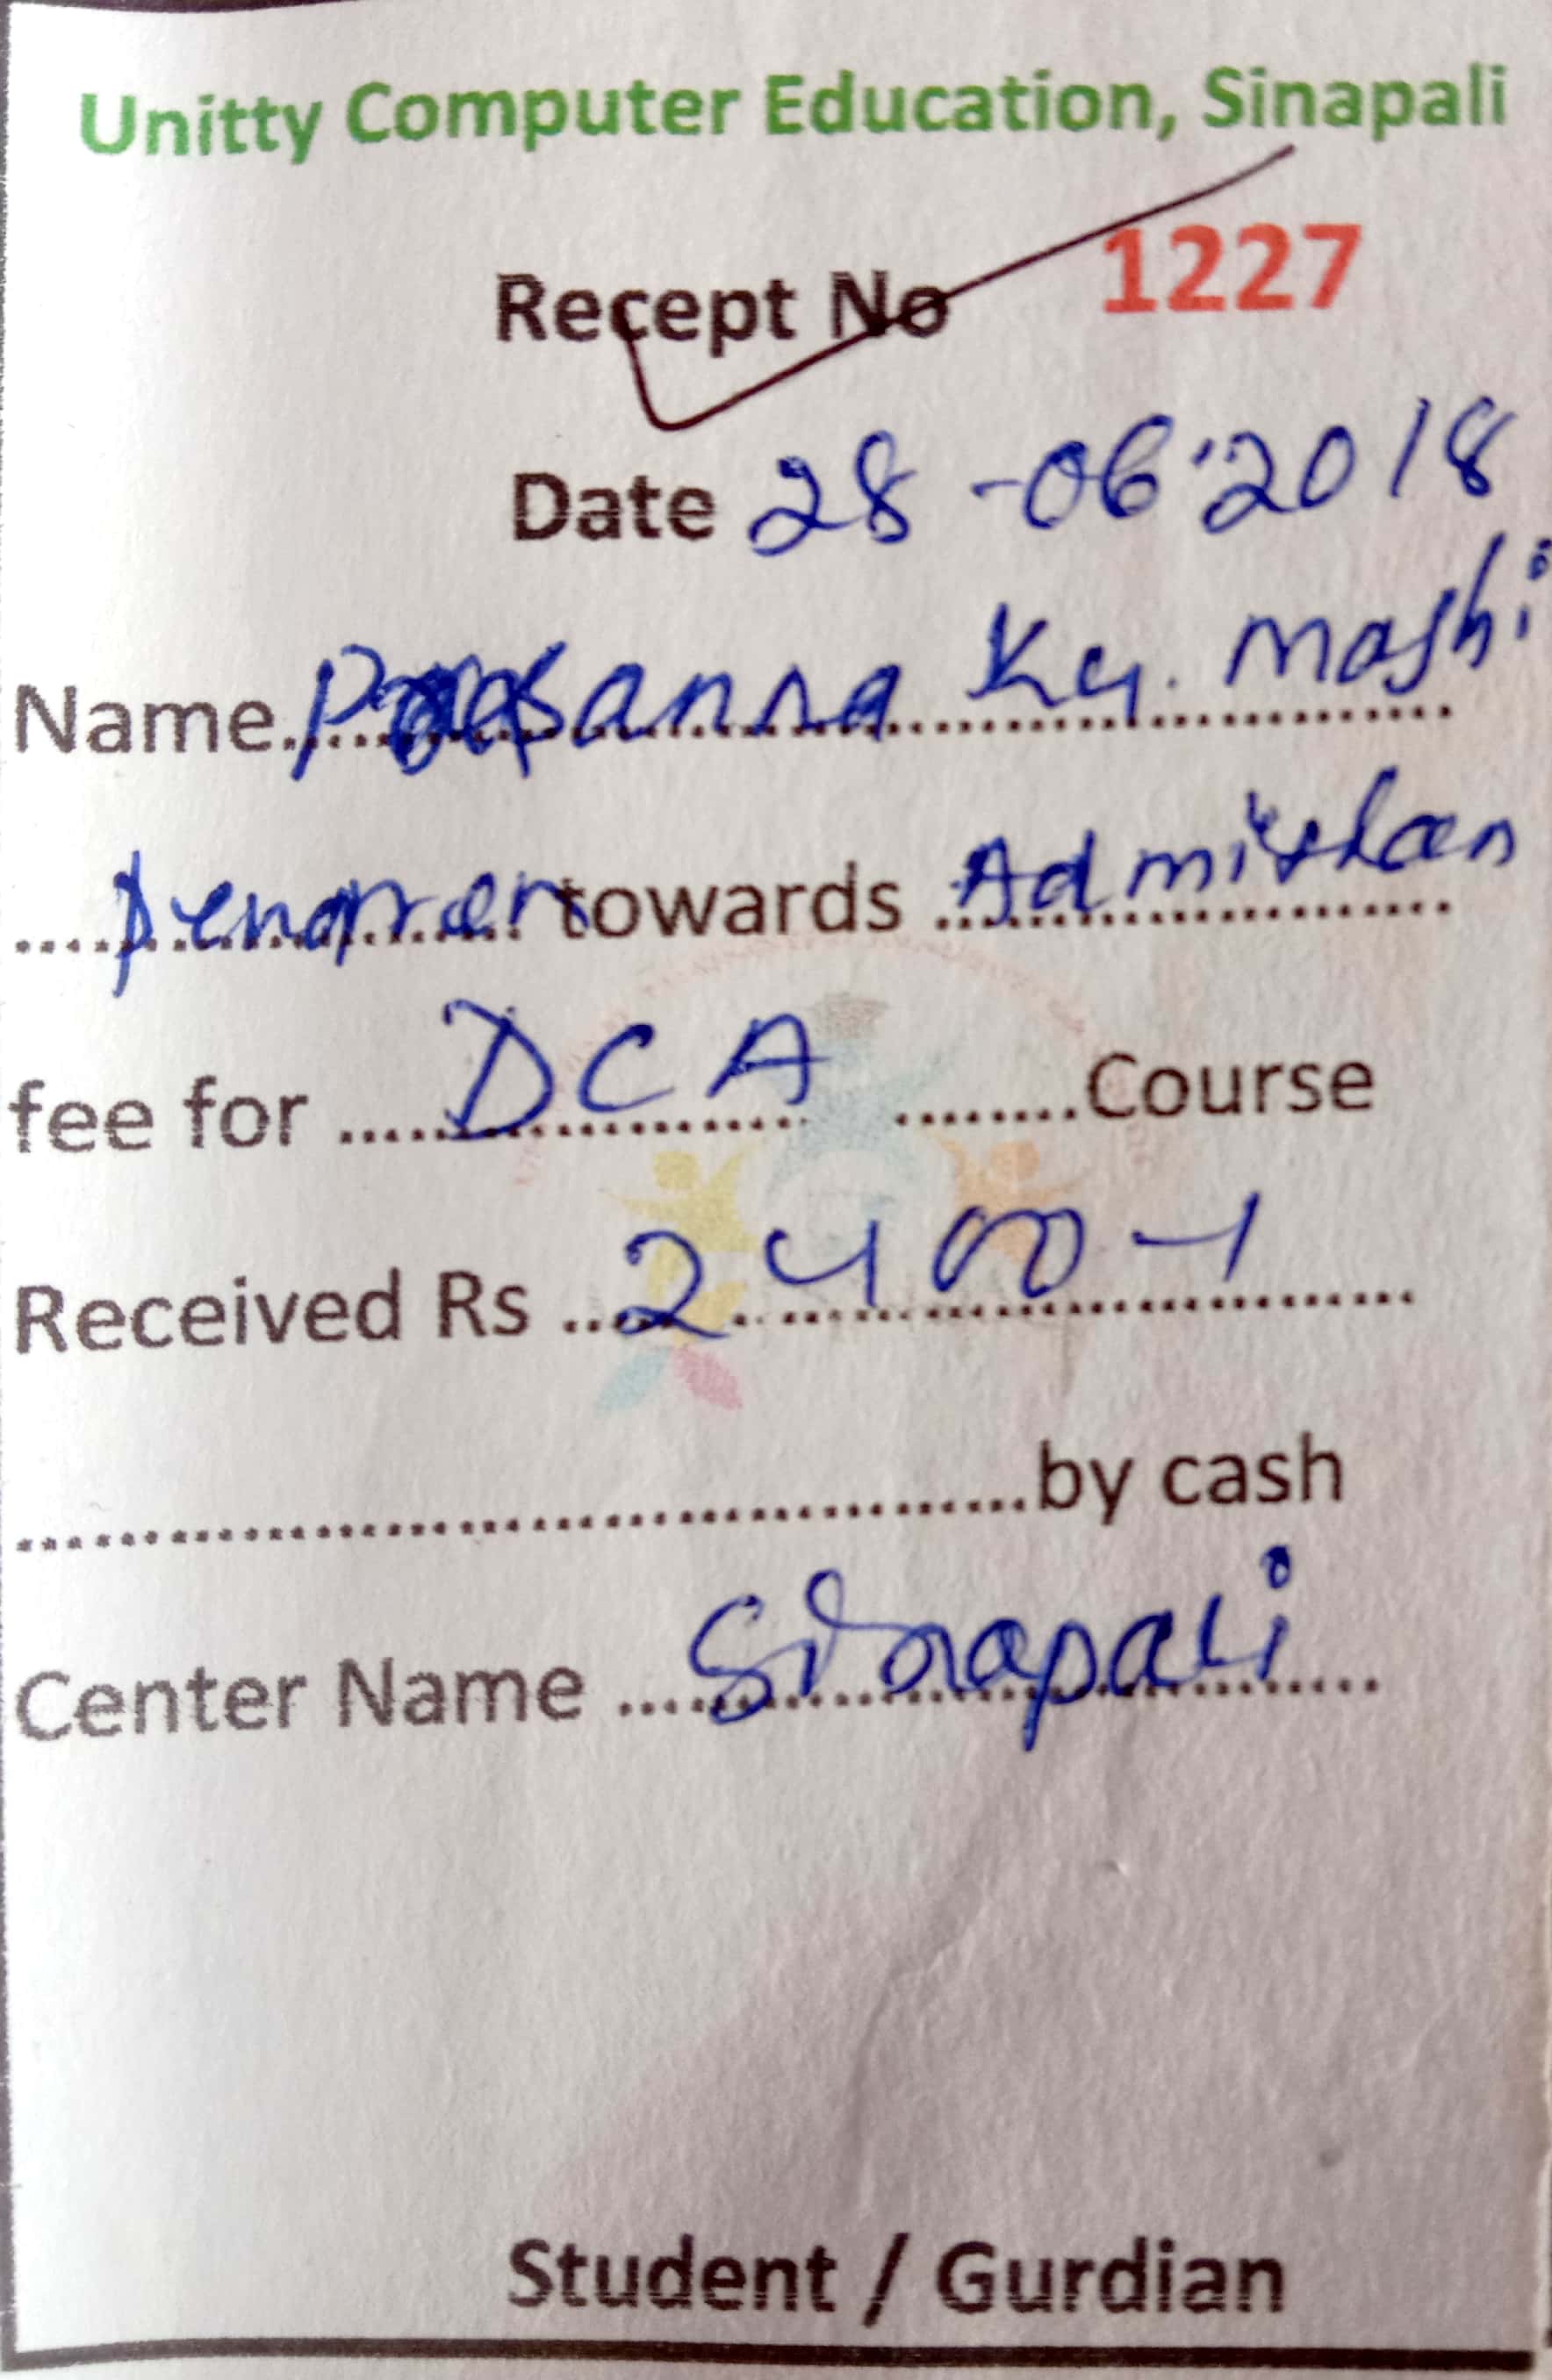 Unitty Computer Education, Sinapali
Recept No 1227
Date 28-06-2018
Name Prasanna Ku. Majhi
towards Admission
fee for DCA Course
Received Rs 2400-/
by cash
Center Name Sinapali
Student / Gurdian